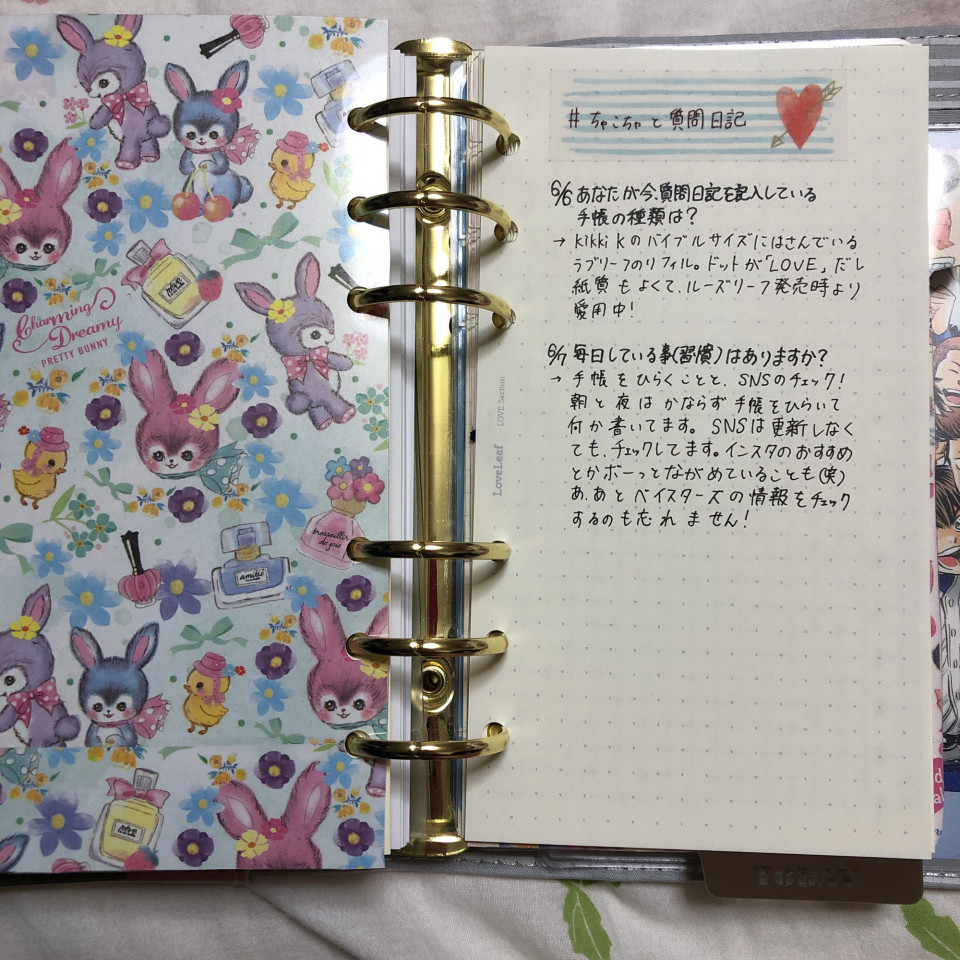 Charming
Dreamy
PRETTY BUNNY
amitié
LoveLeaf LOVE Section
#ちゃこちゃと質問日記
6/6 あなたが今、質問日記を記入している
手帳の種類は?
→ kikki kのバイブルサイズにはさんでいる
ラブリーフのリフィル。ドットが「LOVE」だし
紙質もよくて、ルーズリーフ発売時より
愛用中!
6/7 毎日している事(習慣)はありますか?
→ 手帳をひらくことと、SNSのチェック!
朝と夜はかならず手帳をひらいて
何か書いてます。SNSは更新しなく
ても、チェックしてます。インスタのおすすめ
とかボーっとながめていることも(笑)
あ、あとベイスターズの情報をチェック
するのも忘れません!
TODAY